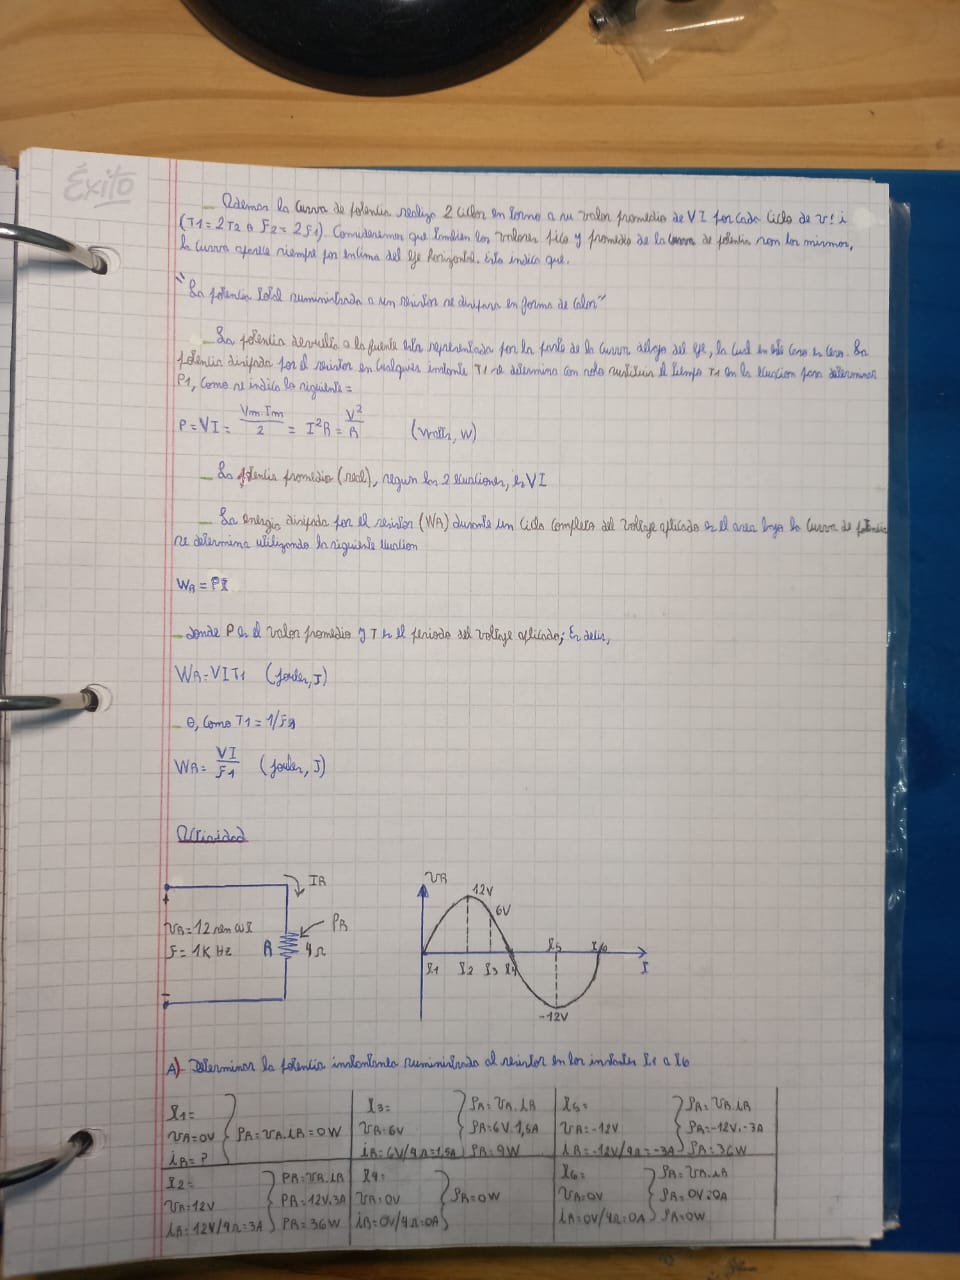 Éxito
Ademas la curva de potencia realiza 2 ciclos en torno a su valor promedio de VI por cada ciclo de v o i
(T1 = 2T2 o F2 = 2F1). Consideremos que tambien los valores pico y promedio de la curva de potencia son los mismos,
la curva aparece siempre por encima del eje horizontal. Esto indica que.
"La potencia total suministrada a un resistor se disipara en forma de calor"
La potencia devuelta a la fuente esta representada por la parte de la curva debajo del eje, la cual en este caso es cero. La
potencia disipada por el resistor en cualquier instante T1 se determina con solo sustituir el tiempo T1 en la ecuacion para determinar
P1, como se indica lo siguiente =
P = VI = Vm.Im/2 = I²R = V²/R (Watts, W)
La potencia promedio (real), segun las 2 ecuaciones, es VI
La energia disipada por el resistor (WR) durante un ciclo completo del voltaje aplicado es el area bajo la curva de potencia
se determina utilizando la siguiente ecuacion
WR = Pt
donde P es el valor promedio y T es el periodo del voltaje aplicado; Es decir,
WR = VIT1 (joules, J)
O, como T1 = 1/F1
WR = VI/F1 (joules, J)
Actividad
IR
VR = 12 sen ωt
F = 1K Hz
R
4Ω
PR
+
-
VR
12V
6V
t1 t2 t3 t4 t5 t6
t
-12V
A) Determinar la potencia instantanea suministrada al resistor en los instantes t1 a t6
t1=
VR=0V
iR= ?
PR=VR.iR=0W
t3=
VR=6V
iR=6V/4Ω=1,5A
PR=VR.iR
PR=6V.1,5A
PR=9W
t5=
VR=-12V
iR=-12V/4Ω=-3A
PR=VR.iR
PR=-12V.-3A
PR=36W
t2=
VR=12V
iR=12V/4Ω=3A
PR=VR.iR
PR=12V.3A
PR=36W
t4=
VR=0V
iR=0V/4Ω=0A
PR=0W
t6=
VR=0V
iR=0V/4Ω=0A
PR=VR.iR
PR=0V.0A
PR=0W